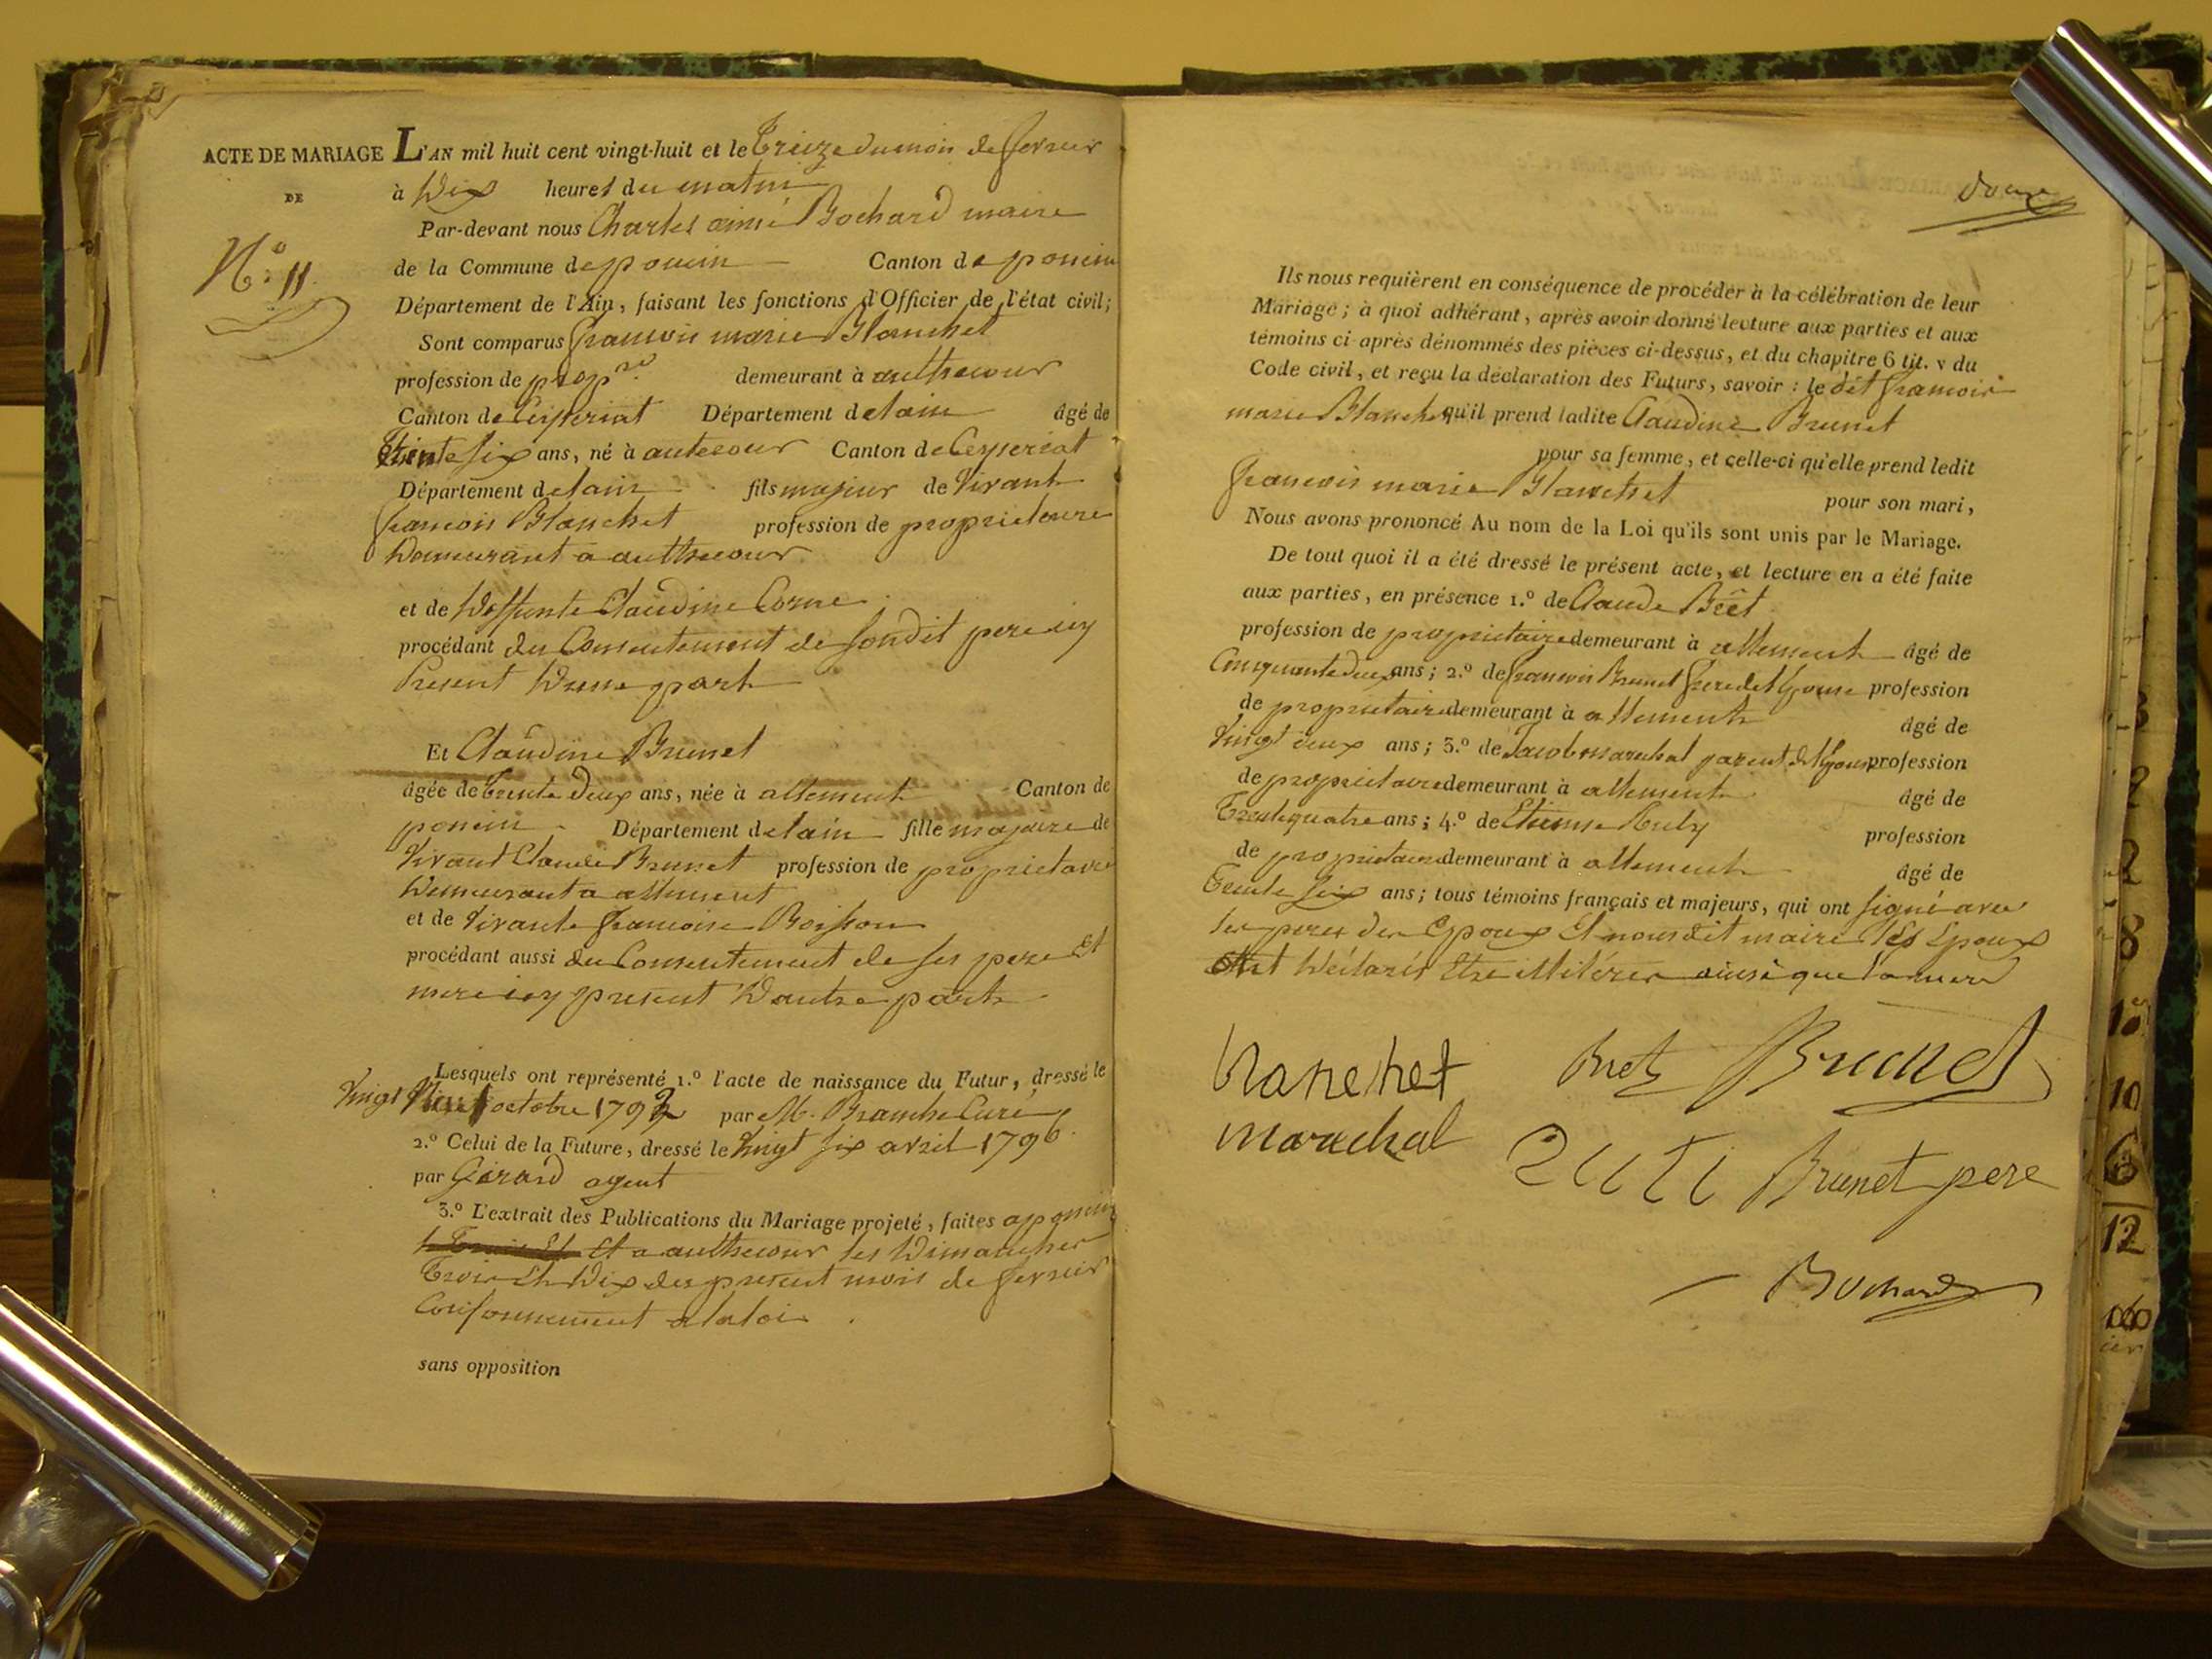 ACTE DE MARIAGE
DE
N.o 11.
L'AN mil huit cent vingt-huit et le Treize du mois de fevrier
à Dix heures du matin
Par-devant nous Charles aimé Bochard maire
de la Commune de poncin Canton de poncin
Département de l'Ain, faisant les fonctions d'Officier de l'état civil;
Sont comparus francois marie Blanchet
profession de prop.re demeurant à authecour
Canton de Ceyseriat Département de lain âgé de
Trente six ans, né à autecour Canton de Ceyseriat
Département de lain fils majeur de vivant
francois Blanchet profession de proprietaire
Demeurant a authecour
et de Deffunte Claudine Corne
procédant du Consentement de son dit pere icy
Present D'une part
Et Claudine Brunet
âgée de Trente Deux ans, née à allement Canton de
poncin Département de lain fille majeure de
vivant Claude Brunet profession de proprietaire
Demeurant a allement
et de vivante francoise Boisson
procédant aussi du Consentement de ses pere et
mere icy present D'autre part
Lesquels ont représenté 1.o l'acte de naissance du Futur, dressé le
vingt octobre 1792 par M. Branche Curé
2.o Celui de la Future, dressé le vingt six avril 1796
par Girard agent
3.o L'extrait des Publications du Mariage projeté, faites a poncin
Et a authecour les Dimanches
Trois et Dix du present mois de fevrier
Conformement a la loi
sans opposition
douze
Ils nous requièrent en conséquence de procéder à la célébration de leur
Mariage; à quoi adhérant, après avoir donné lecture aux parties et aux
témoins ci-après dénommés des pièces ci-dessus, et du chapitre 6 tit. v du
Code civil, et reçu la déclaration des Futurs, savoir: le dit francois
marie Blanchet qu'il prend ladite Claudine Brunet
pour sa femme, et celle-ci qu'elle prend ledit
francois marie Blanchet pour son mari,
Nous avons prononcé Au nom de la Loi qu'ils sont unis par le Mariage.
De tout quoi il a été dressé le présent acte, et lecture en a été faite
aux parties, en présence 1.o de Claude
profession de proprietaire demeurant à allement âgé de
Cinquante deux ans; 2.o de francois Brunet frere de l'épouse profession
de proprietaire demeurant à allement âgé de
vingt deux ans; 3.o de Jacob marechal parent de l'épouse profession
de proprietaire demeurant à allement âgé de
Trente quatre ans; 4.o de Etienne profession
de proprietaire demeurant à allement âgé de
Trente six ans; tous témoins français et majeurs, qui ont signé avec
les peres des Epoux Et nous dit maire les Epoux
ont Déclarés Etre illitérés ainsi que la mere
blanchet Bret Brunet
marechal Brunet pere
Bochard